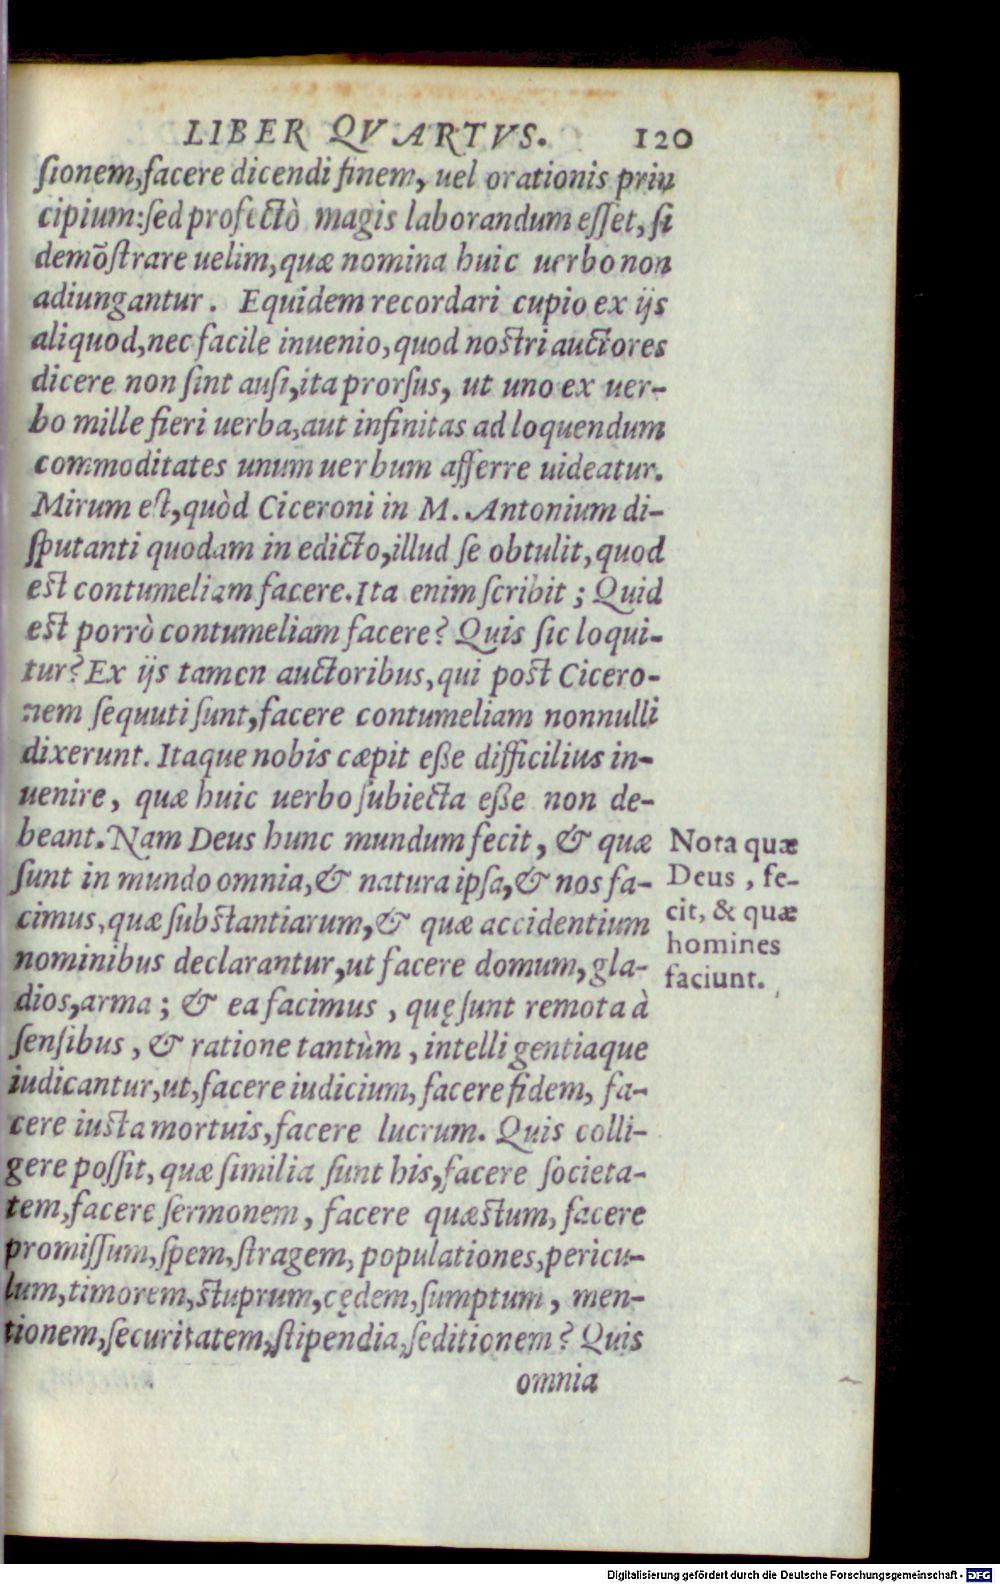 LIBER QVARTVS. 120
sionem, facere dicendi finem, uel orationis prin
cipium: sed profectò magis laborandum esset, si
demõstrare uelim, quæ nomina huic uerbo non
adiungantur. Equidem recordari cupio ex ijs
aliquod, nec facile inuenio, quod nostri auctores
dicere non sint ausi, ita prorsus, ut uno ex uer-
bo mille fieri uerba, aut infinitas ad loquendum
commoditates unum uerbum afferre uideatur.
Mirum est, quòd Ciceroni in M. Antonium di-
sputanti quodam in edicto, illud se obtulit, quod
est contumeliam facere. Ita enim scribit; Quid
est porrò contumeliam facere? Quis sic loqui-
tur? Ex ijs tamen auctoribus, qui post Cicero-
nem sequuti sunt, facere contumeliam nonnulli
dixerunt. Itaque nobis cæpit eße difficilius in-
uenire, quæ huic uerbo subiecta eße non de-
beant. Nam Deus hunc mundum fecit, & quæ
sunt in mundo omnia, & natura ipsa, & nos fa-
cimus, quæ substantiarum, & quæ accidentium
nominibus declarantur, ut facere domum, gla-
dios, arma; & ea facimus, quę sunt remota à
sensibus, & ratione tantùm, intelligentiaque
iudicantur, ut, facere iudicium, facere fidem, fa-
cere iusta mortuis, facere lucrum. Quis colli-
gere possit, quæ similia sunt his, facere societa-
tem, facere sermonem, facere quæstum, facere
promissum, spem, stragem, populationes, pericu-
lum, timorem, stuprum, cędem, sumptum, men-
tionem, securitatem, stipendia, seditionem? Quis
omnia
Nota quæ
Deus, fe-
cit, & quæ
homines
faciunt.
Digitalisierung gefördert durch die Deutsche Forschungsgemeinschaft - DFG